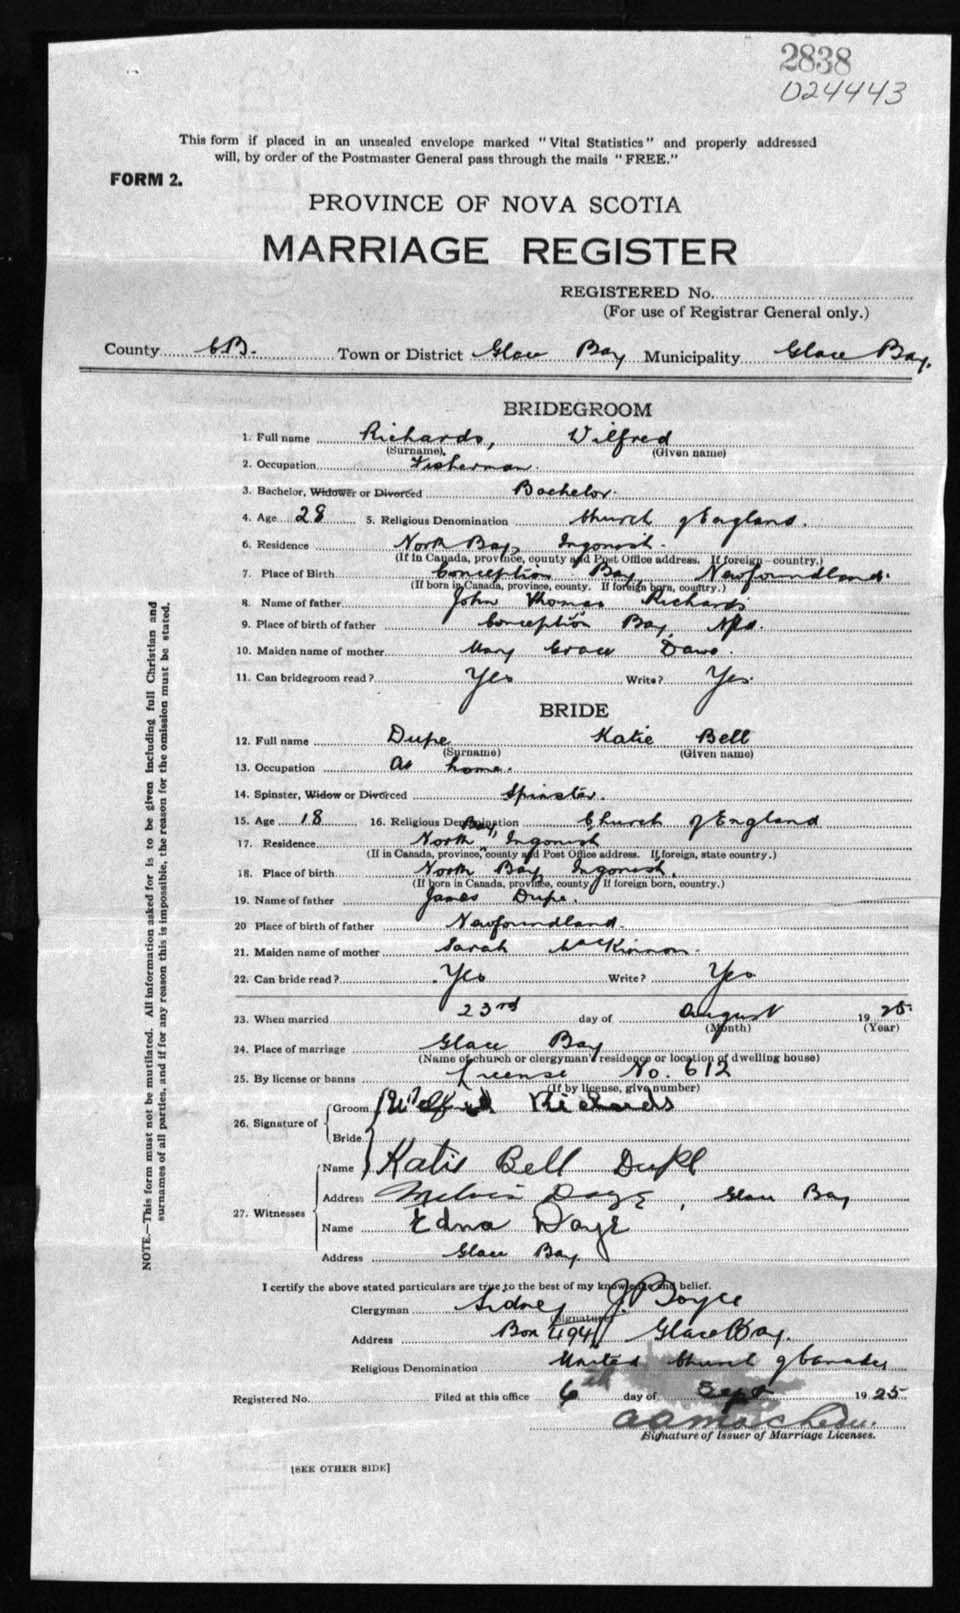 2838
024443
This form if placed in an unsealed envelope marked "Vital Statistics" and properly addressed
will, by order of the Postmaster General pass through the mails "FREE."
FORM 2.
PROVINCE OF NOVA SCOTIA
MARRIAGE REGISTER
REGISTERED No.
(For use of Registrar General only.)
County C.B. Town or District Glace Bay Municipality Glace Bay.
BRIDEGROOM
1. Full name Richards, Wilfred
(Surname), (Given name)
2. Occupation Fisherman.
3. Bachelor, Widower or Divorced Bachelor.
4. Age 28 5. Religious Denomination Church of England.
6. Residence North Bay, Ingonish.
(If in Canada, province, county and Post Office address. If foreign—country.)
7. Place of Birth Conception Bay, Newfoundland.
(If born in Canada, province, county. If foreign born, country.)
8. Name of father John Thomas Richards
9. Place of birth of father Conception Bay, Nfld.
10. Maiden name of mother Mary Grace Dawe.
11. Can bridegroom read? Yes Write? Yes.
BRIDE
12. Full name Dupe Katie Bell
(Surname) (Given name)
13. Occupation At home.
14. Spinster, Widow or Divorced Spinster.
15. Age 18 16. Religious Denomination Church of England
17. Residence North Bay, Ingonish
(If in Canada, province, county and Post Office address. If foreign, state country.)
18. Place of birth North Bay Ingonish.
(If born in Canada, province, county If foreign born, country.)
19. Name of father James Dupe.
20 Place of birth of father Newfoundland.
21. Maiden name of mother Sarah MacKinnon.
22. Can bride read? Yes Write? Yes
23. When married 23rd day of August 1925.
(Month) (Year)
24. Place of marriage Glace Bay
(Name of church or clergyman's residence or location of dwelling house)
25. By license or banns License No. 612
(If by license, give number)
26. Signature of Groom Wilfred Richards
Bride
Name Katie Bell Dupe
Address Melvin Daye, Glace Bay
27. Witnesses
Name Edna Daye
Address Glace Bay
I certify the above stated particulars are true to the best of my knowledge and belief.
Clergyman Sidney J. Boyce
(Signature)
Address Box 494 Glace Bay.
Religious Denomination United Church of Canada,
Registered No. Filed at this office 6th day of Sept 1925
Signature of Issuer of Marriage Licenses.
[SEE OTHER SIDE]
NOTE.—This form must not be mutilated. All information asked for is to be given including full Christian and
surnames of all parties, and if for any reason this is impossible, the reason for the omission must be stated.